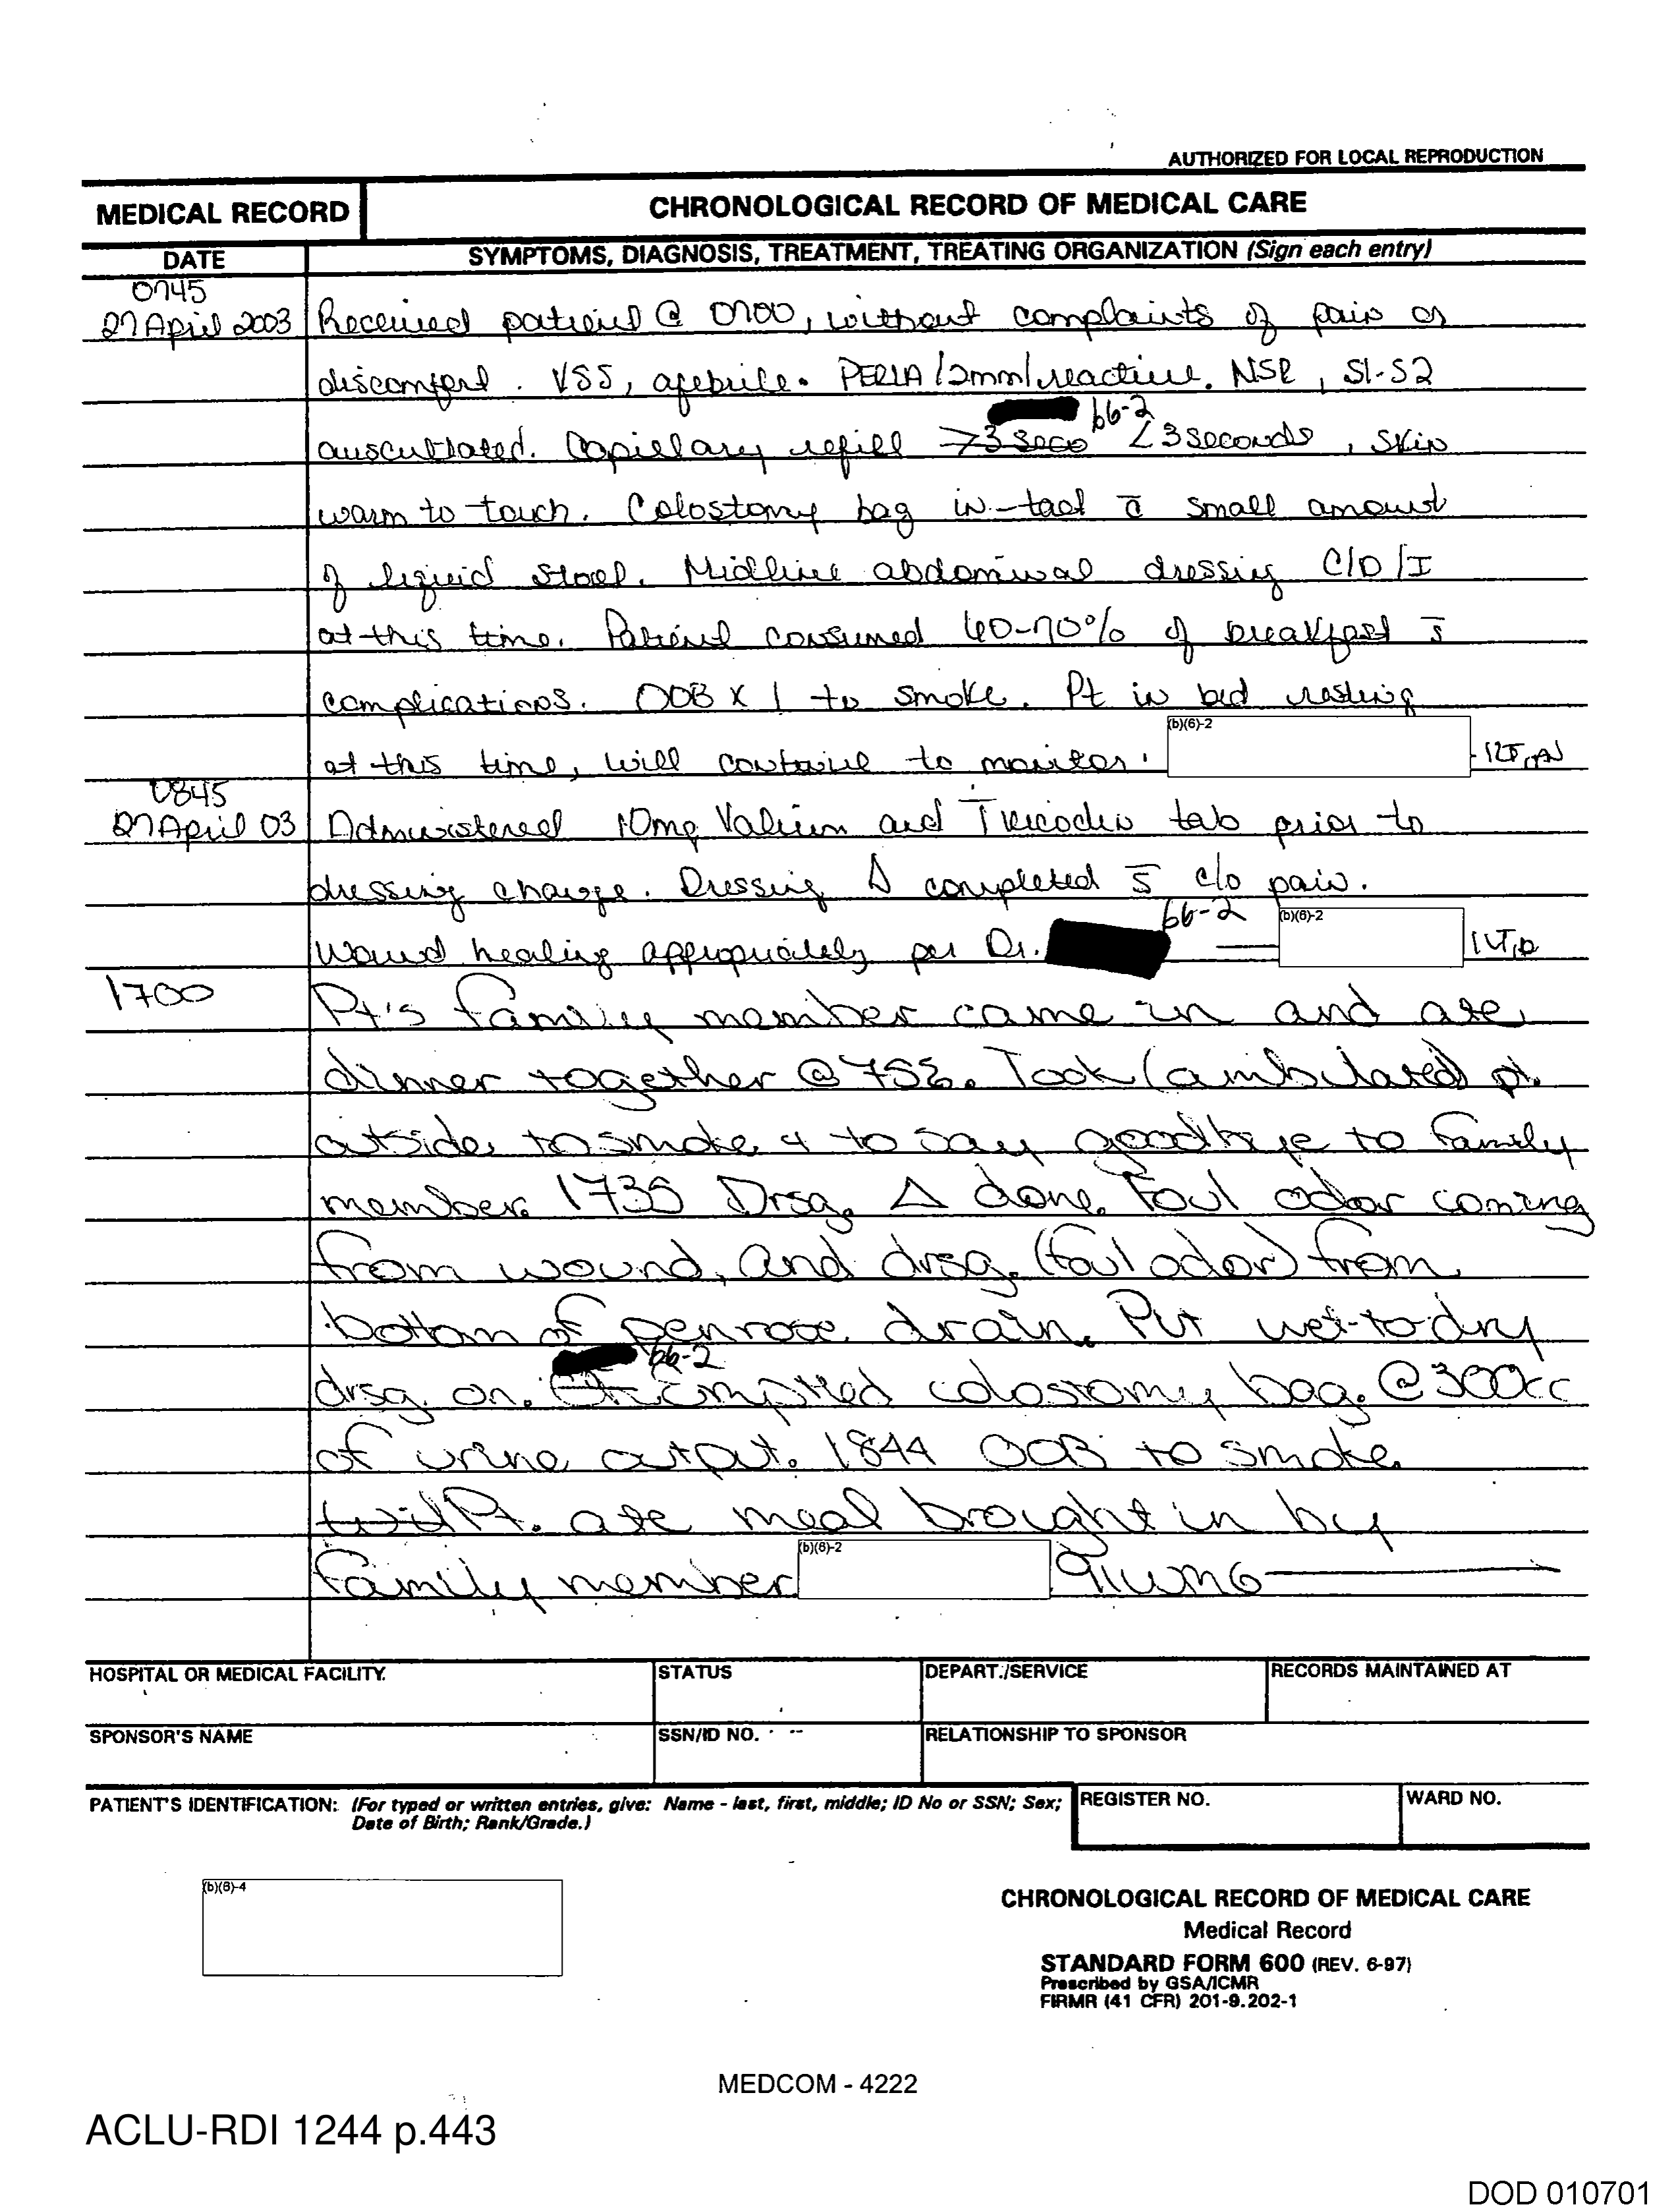 AUTHORIZED FOR LOCAL REPRODUCTION
MEDICAL RECORD
CHRONOLOGICAL RECORD OF MEDICAL CARE
DATE
SYMPTOMS, DIAGNOSIS, TREATMENT, TREATING ORGANIZATION (Sign each entry)
0745
27 April 2003 Received patient @ 0700, without complaints of pain or
discomfort. VSS, afebrile. PERLA/2mm/reactive. NSR, S1-S2
b6-2
auscultated. Capillary refill >3 seco <3 seconds, skin
warm to touch. Colostomy bag in-tact c̄ small amount
of liquid stool. Midline abdominal dressing C/D/I
at this time. Patient consumed 60-70% of breakfast s̄
complications. OOB x 1 to smoke. Pt in bed resting
at this time, will continue to monitor. (b)(6)-2 1LT, AN
0845
27 April 03 Administered 10mg Valium and T Vicodin tab prior to
dressing change. Dressing Δ completed s̄ c/o pain.
Wound healing appropriately per Dr. b6-2 (b)(6)-2
1700 Pt's family member came in and ate
dinner together @ 75%. Took (ambulated) pt.
outside to smoke & to say goodbye to family
member. 1735 Drsg. Δ done. Foul odor coming
from wound, and drsg. (foul odor) from
bottom of penrose drain. Put wet-to-dry
b6-2
drsg. on. Emptied colostomy bag. @ 300cc
of urine output. 1844 OOB to smoke.
Pt. ate meal brought in by
family member (b)(6)-2 91WM6
HOSPITAL OR MEDICAL FACILITY
STATUS
DEPART./SERVICE
RECORDS MAINTAINED AT
SPONSOR'S NAME
SSN/ID NO.
RELATIONSHIP TO SPONSOR
PATIENT'S IDENTIFICATION: (For typed or written entries, give: Name - last, first, middle; ID No or SSN; Sex;
Date of Birth; Rank/Grade.)
REGISTER NO.
WARD NO.
(b)(6)-4
CHRONOLOGICAL RECORD OF MEDICAL CARE
Medical Record
STANDARD FORM 600 (REV. 6-97)
Prescribed by GSA/ICMR
FIRMR (41 CFR) 201-9.202-1
MEDCOM - 4222
ACLU-RDI 1244 p.443
DOD 010701